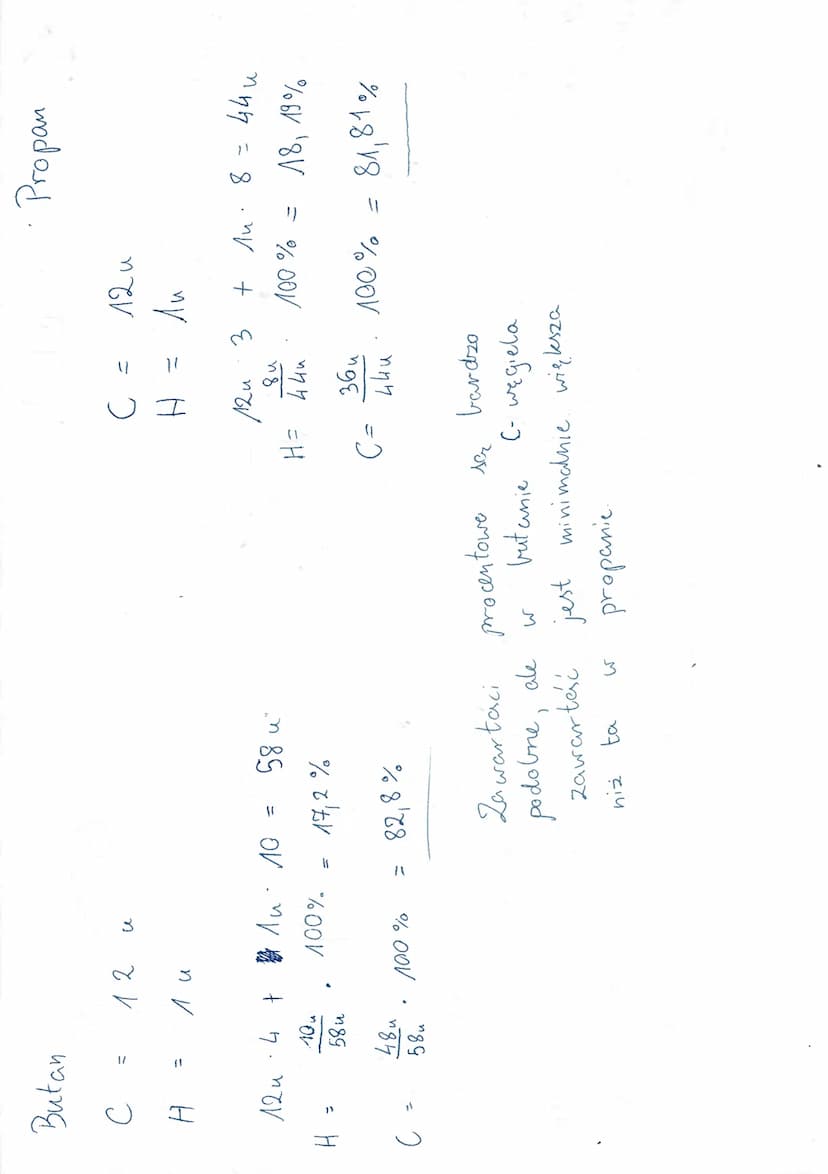 Butan
C = 12 u
H = 1 u
12u · 4 + 1u · 10 = 58 u
H = 10u/58u · 100% = 17,2%
C = 48u/58u · 100% = 82,8%
Propan
C = 12u
H = 1u
12u · 3 + 1u · 8 = 44u
H = 8u/44u · 100% = 18,19%
C = 36u/44u · 100% = 81,81%
Zawartości procentowe są bardzo
podobne, ale w butanie C-węgiela
zawartość jest minimalnie większa
niż ta w propanie.